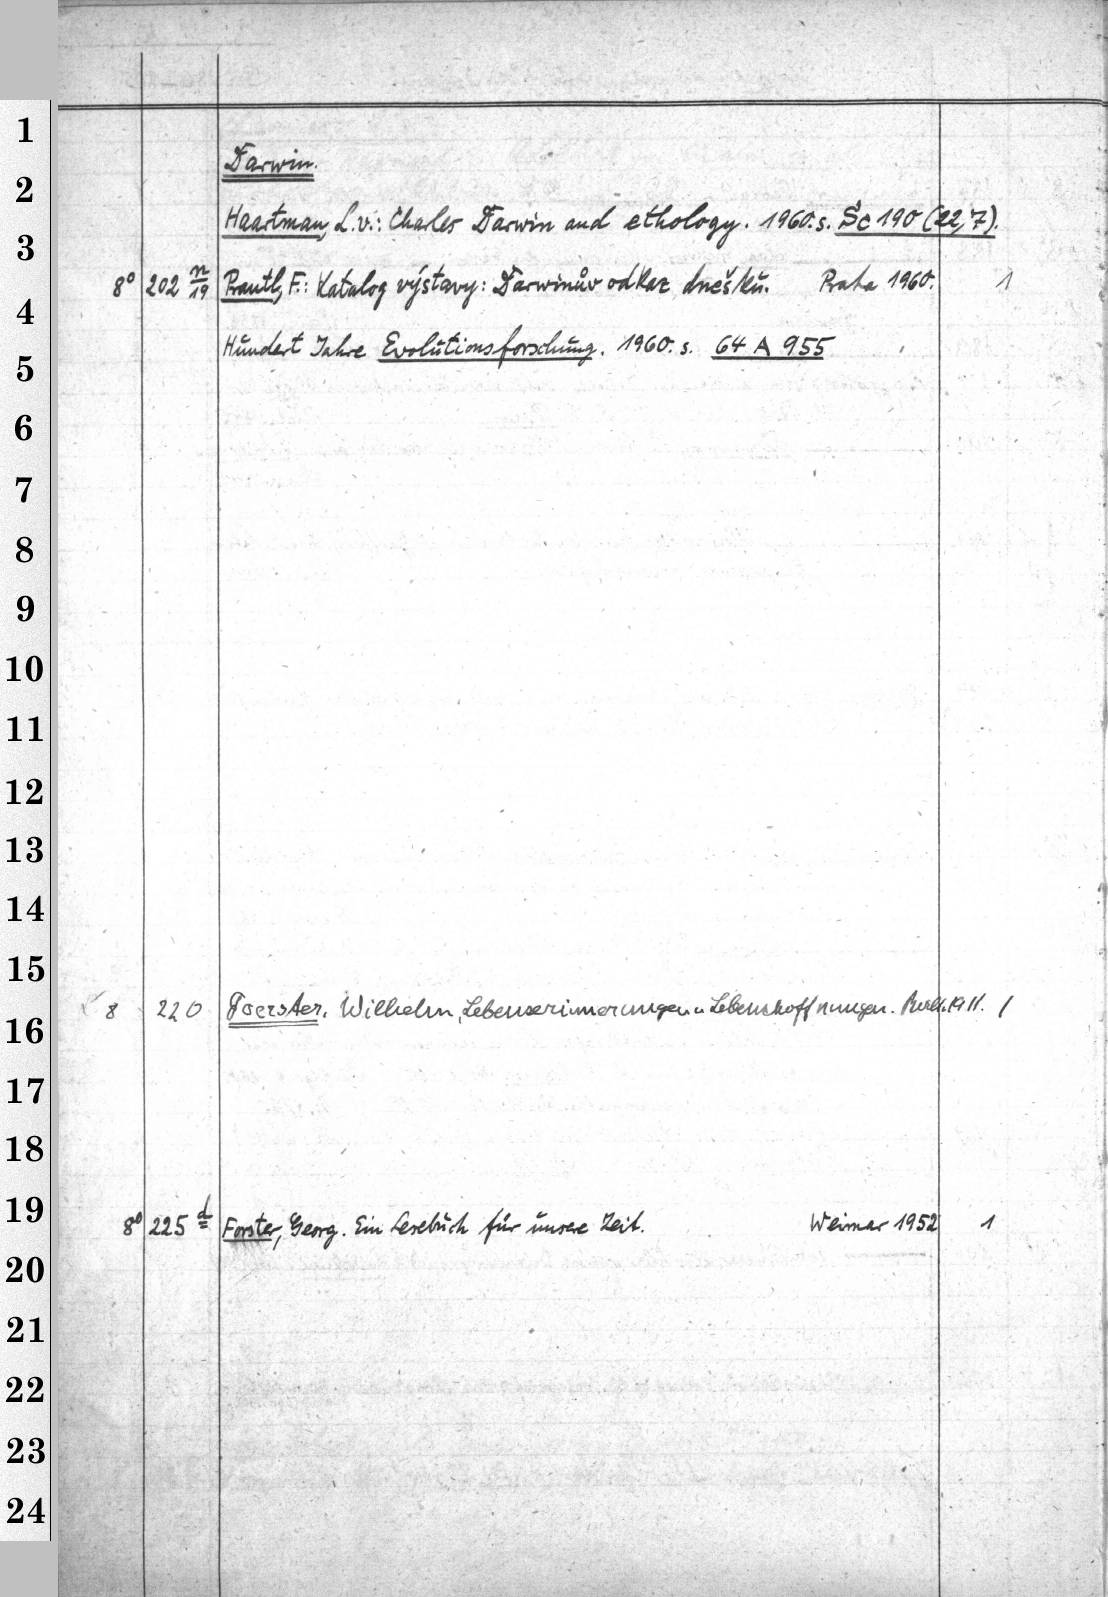 1
2
3
4
5
6
7
8
9
10
11
12
13
14
15
16
17
18
19
20
21
22
23
24
Darwin.
Haartman, L.v.: Charles Darwin and ethology. 1960. s. Sc 190 (22,7).
8° 202 n/19 Prantl, F.: Katalog výstavy: Darwinův odkaz dnešku. Praha 1960. 1
Hundert Jahre Evolutionsforschung. 1960. s. 64 A 955
8 220 Foerster, Wilhelm, Lebenserinnerungen u Lebenshoffnungen. Berl. 1911. 1
8° 225 d Forster, Georg. Ein Lesebuch für unsere Zeit. Weimar 1952 1